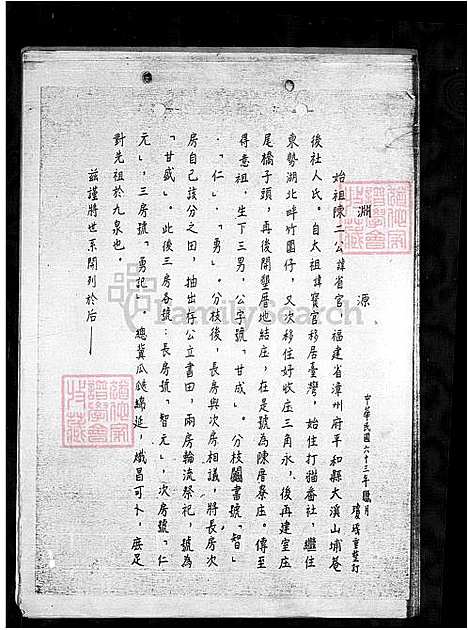 淵源
中華民國六十三年臘月
瓊琇重整訂
始祖陳二公諱省官　福建省漳州府平和縣大溪山埔菴
後社人氏。自太祖諱寶官移居臺灣，始住打猫番社，繼住
東勢湖北畔竹圍仔，又次移住好收庄三角永，後再建室庄
尾橋子頭，再後開墾厝地結庄，在是號為陳厝寮庄。傳至
得意祖，生下三男，公字號「甘成」。分枝鬮書號「智」
．「仁」．「勇」。分枝後，長房與次房相議，將長房次
房自己該分之田，抽出存公立書田，兩房輪流祭祀，號為
「甘盛」。此後三房各號：長房號「智元」，次房號「仁
元」，三房號「勇記」。總冀瓜瓞綿延，熾昌可卜，庶足
對先祖於九泉也。
茲謹將世系開列於后——
FamilySearch